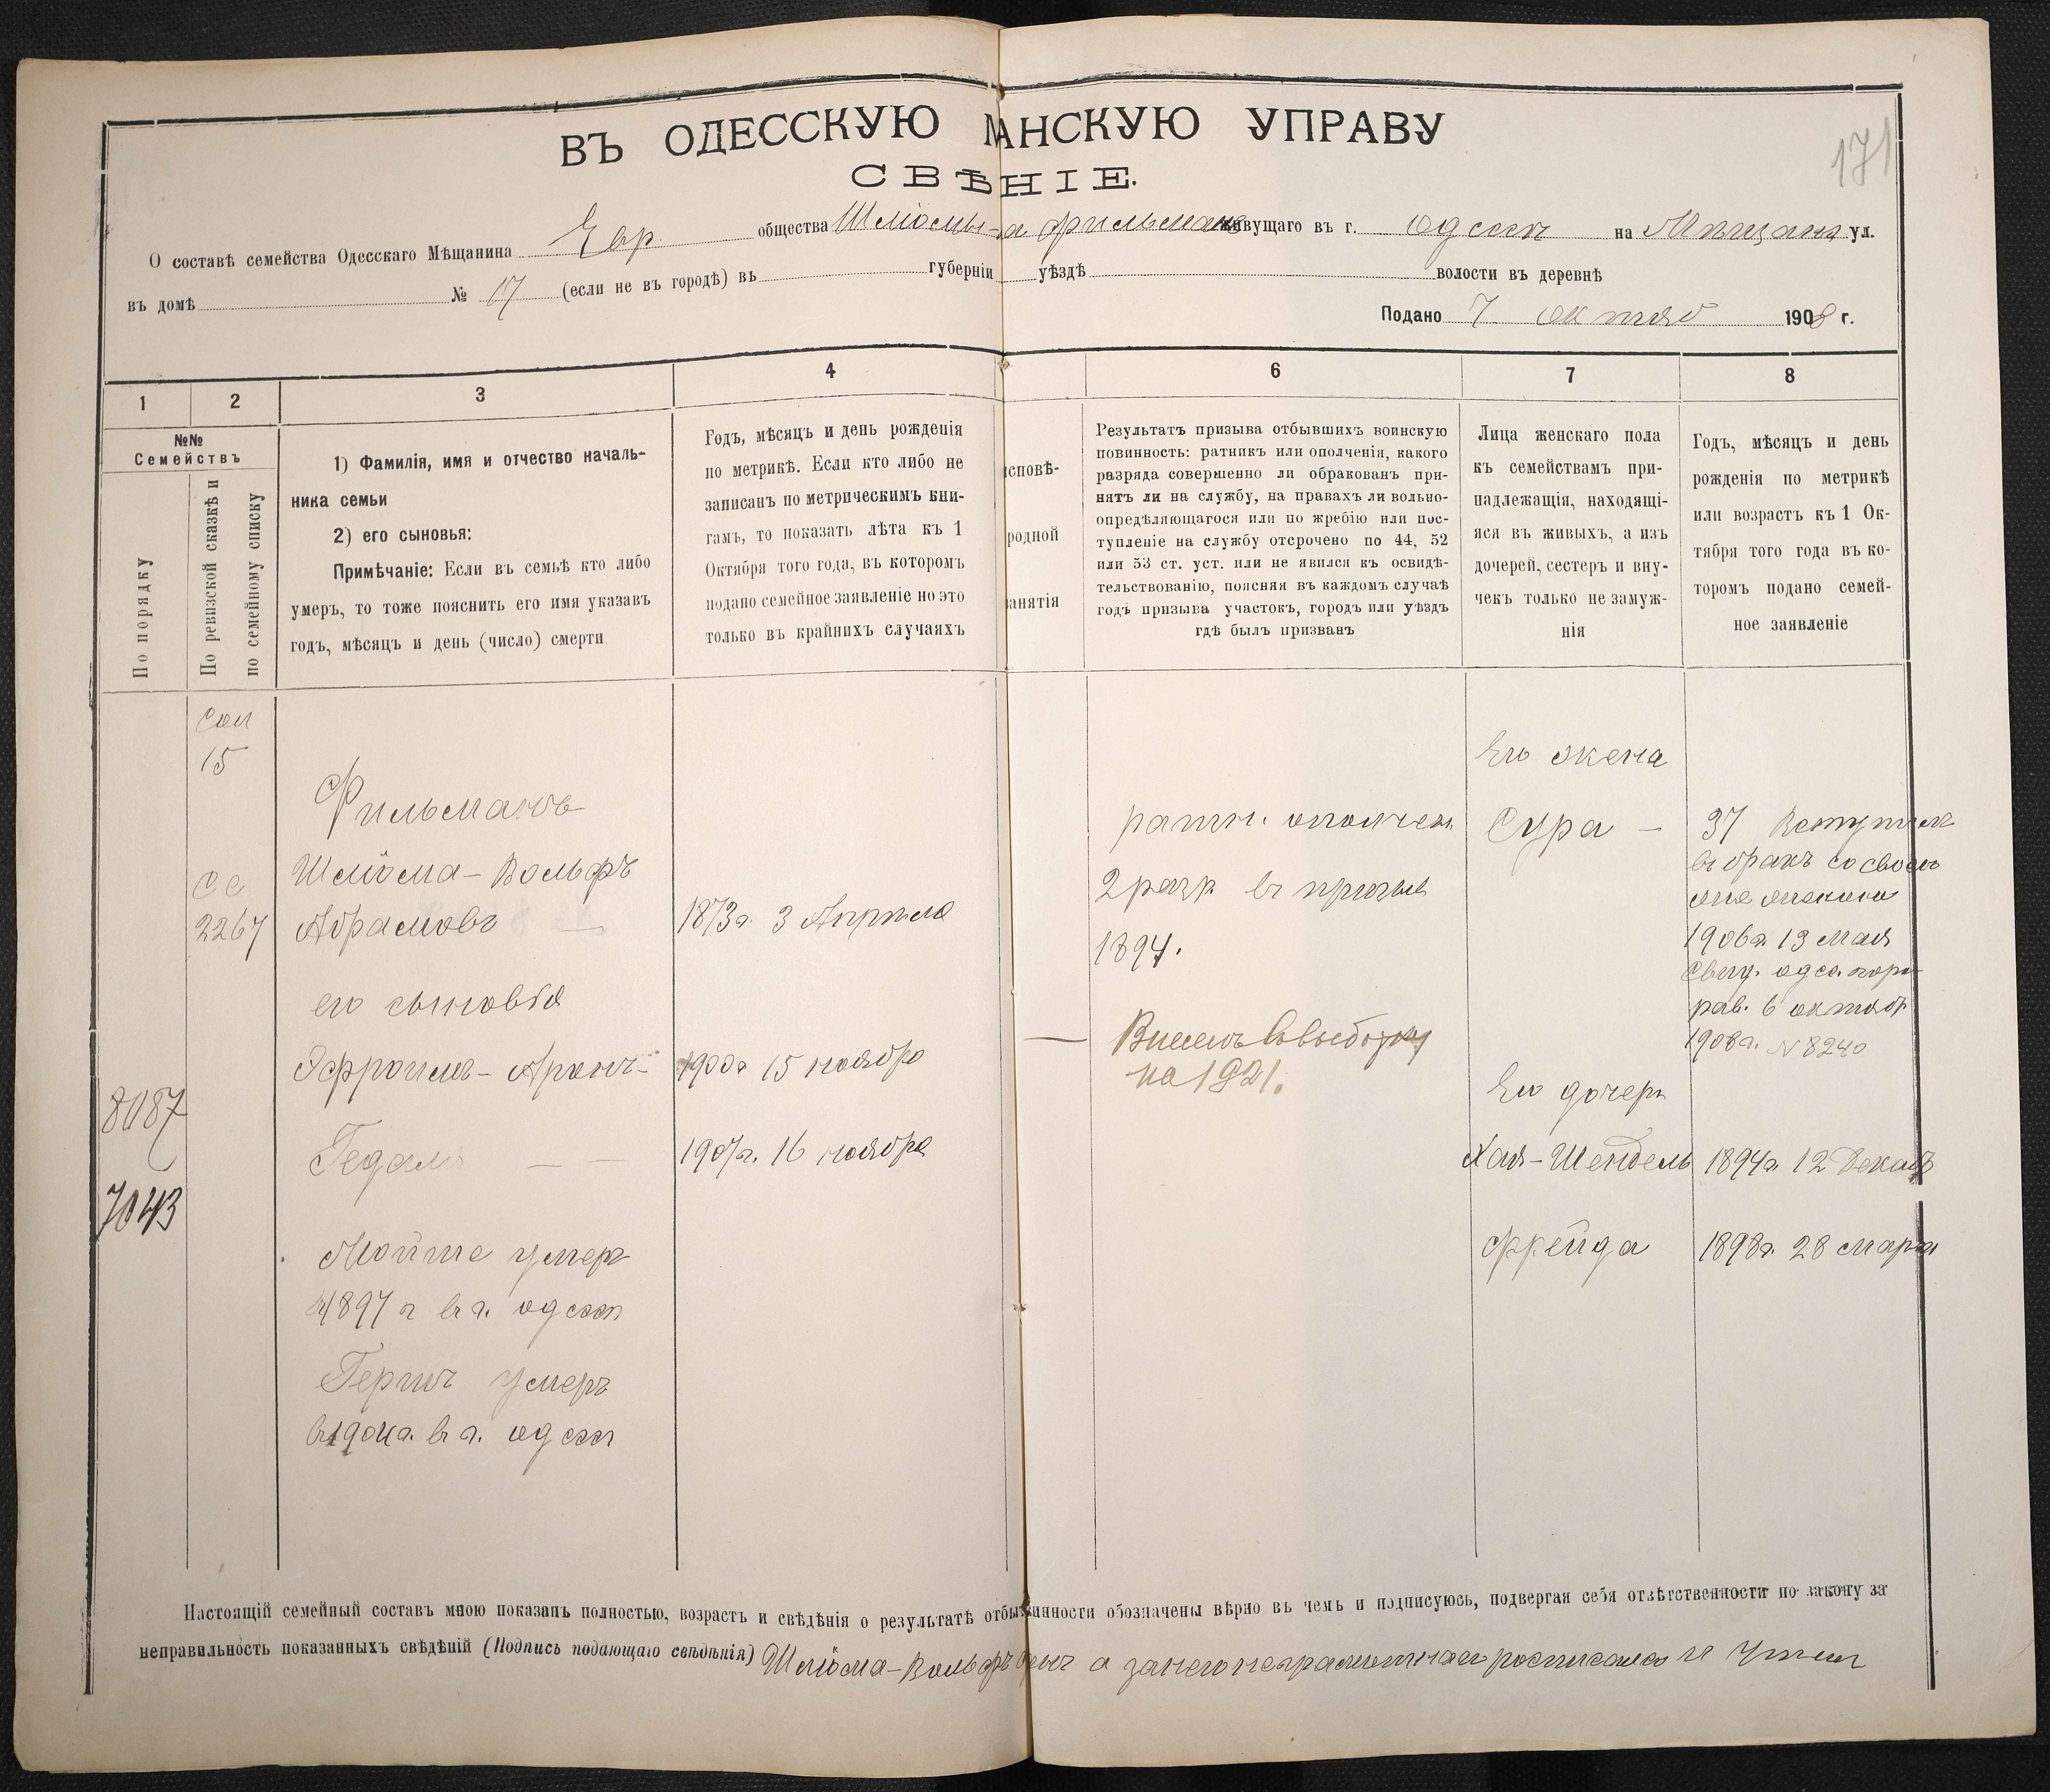 ВЪ ОДЕССКУЮ АНСКУЮ УПРАВУ
171
СВѢНІЕ.
О составѣ семейства Одесскаго Мѣщанина Евр. общества Шліомы фильмана живущаго въ г. Одессѣ на Мѣщанск ул.
въ домѣ № 17 (если не въ городѣ) въ губерніи уѣздѣ волости въ деревнѣ
Подано 7 октяб 1908 г.
1 2 3 4 6 7 8
№№
Семействъ
По порядку
По ревизской сказкѣ и
по семейному списку
1) Фамилія, имя и отчество началь-
ника семьи
2) его сыновья:
Примѣчаніе: Если въ семьѣ кто либо
умеръ, то тоже пояснить его имя указавъ
годъ, мѣсяцъ и день (число) смерти
Годъ, мѣсяцъ и день рожденія
по метрикѣ. Если кто либо не
записанъ по метрическимъ кни-
гамъ, то показать лѣта къ 1
Октября того года, въ которомъ
подано семейное заявленіе но это
только въ крайнихъ случаяхъ
исповѣ-
родной
занятія
Результатъ призыва отбывшихъ воинскую
повинность: ратникъ или ополченія, какого
разряда совершенно ли обракованъ при-
нятъ ли на службу, на правахъ ли вольно-
опредѣляющагося или по жребію или пос-
тупленіе на службу отсрочено по 44, 52
или 53 ст. уст. или не явился къ освидѣ-
тельствованію, поясняя въ каждомъ случаѣ
годъ призыва участокъ, городъ или уѣздъ
гдѣ былъ призванъ
Лица женскаго пола
къ семействамъ при-
надлежащія, находящі-
яся въ живыхъ, а изъ
дочерей, сестеръ и вну-
чекъ только не замуж-
нія
Годъ, мѣсяцъ и день
рожденія по метрикѣ
или возрастъ къ 1 Ок-
тября того года въ ко-
торомъ подано семей-
ное заявленіе
15
СС
2267
8087
7043
Фильманъ
Шліома-Вольфъ
Абрамовъ —
его сыновья
Эфроимъ-Аронъ-
Гедаля — —
Мойше умеръ
в 1897 г в г. одессѣ
Гершъ умеръ
в 1904г. в г. одессѣ
1873г. 3 Апрѣля
1900г 15 ноября
1907г. 16 ноября
ратн. ополчен
2 разр в призыв
1894.
— Внесенъ въ выборку
на 1921.
Его жена
Сура —
Его дочери
Хая-Шендель
Фрейда
37 Вступила
въ бракъ со своимъ
1906г. 13 мая
Свид. одес. гор.
рав. 6 октябр
1908г. N 8240
1894г. 12 Декаб
1898г. 28 марта
Настоящій семейный составъ мною показанъ полностью, возрастъ и свѣдѣнія о результатѣ отбыинности обозначены вѣрно въ чемъ и подписуюсь, подвергая себя отвѣтственности по закону за
неправильность показанныхъ свѣдѣній (Подпись подающаго свѣдѣнія) Шліома-Вольфъ а за него неграмотнаго росписался